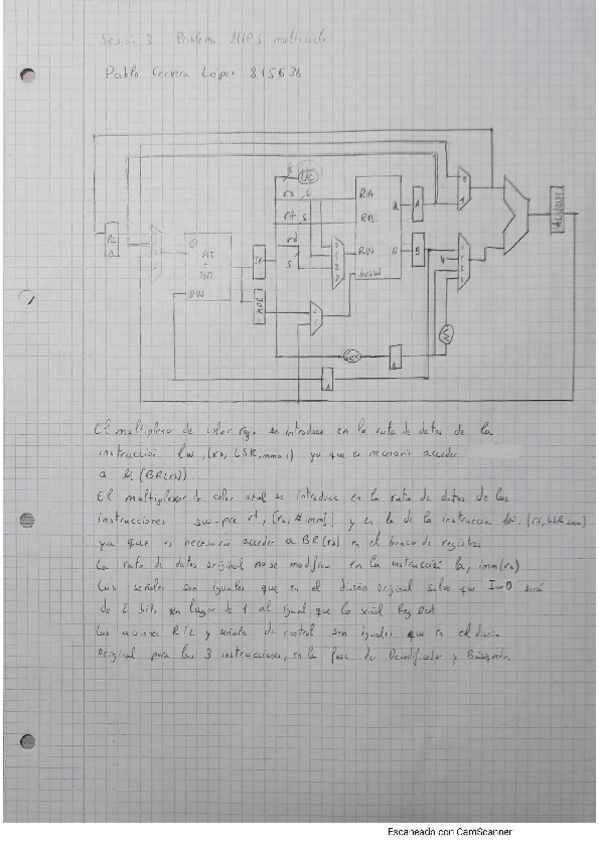 Sesión 3 Problema MIPS multiciclo
Pablo Cervera López
UC
rs 5
rt 5
rd
5
RA
RB
RW
busW
A
B
PC
@
DW
IR
MDR
4
ALUout
0
1
2
3
El multiplexor de color rojo se introduce en la ruta de datos de la
instrucción lw ya que es necesario acceder
a (BR(rs))
El multiplexor de color azul se introduce en la ruta de datos de las
instrucciones sw-pre rt, y en la de la instruccion lw
ya que es necesario acceder a BR(rs) en el banco de registros
La ruta de datos original no se modifica en la instrucción la, imm(rs)
Las señales son iguales que en el diseño original salvo que IorD será
de 2 bits en lugar de 1 al igual que la señal RegDst
Las acciones RTL y señales de control son iguales que en el diseño
original para las 3 instrucciones, en la fase de Decodificación y Búsqueda
Escaneado con CamScanner